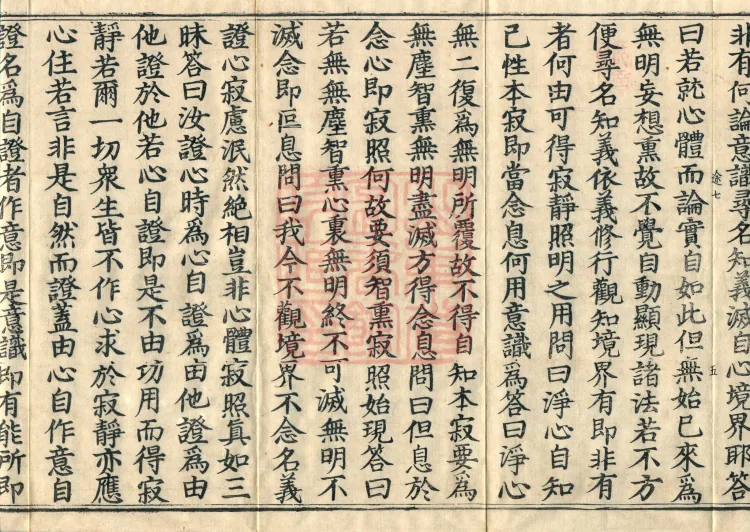 非有何論意識尋名知義滅自心境界耶答
曰若就心體而論實自如此但無始已來爲
無明妄想熏故不覺自動顯現諸法若不方
便尋名知義依義修行觀知境界有即非有
者何由可得寂靜照明之用問曰淨心自知
己性本寂即當念息何用意識爲答曰淨心
無二復爲無明所覆故不得自知本寂要爲
無塵智熏無明盡滅方得念息問曰但息於
念心即寂照何故要須智熏寂照始現答曰
若無無塵智熏心裏無明終不可滅無明不
滅念即叵息問曰我今不觀境界不念名義
證心寂慮泯然絶相豈非心體寂照真如三
昧答曰汝證心時爲心自證爲由他證爲由
他證於他若心自證即是不由功用而得寂
靜若爾一切衆生皆不作心求於寂靜亦應
心住若言非是自然而證蓋由心自作意自
證名爲自證者作意即是意識即有能所即
途七
五